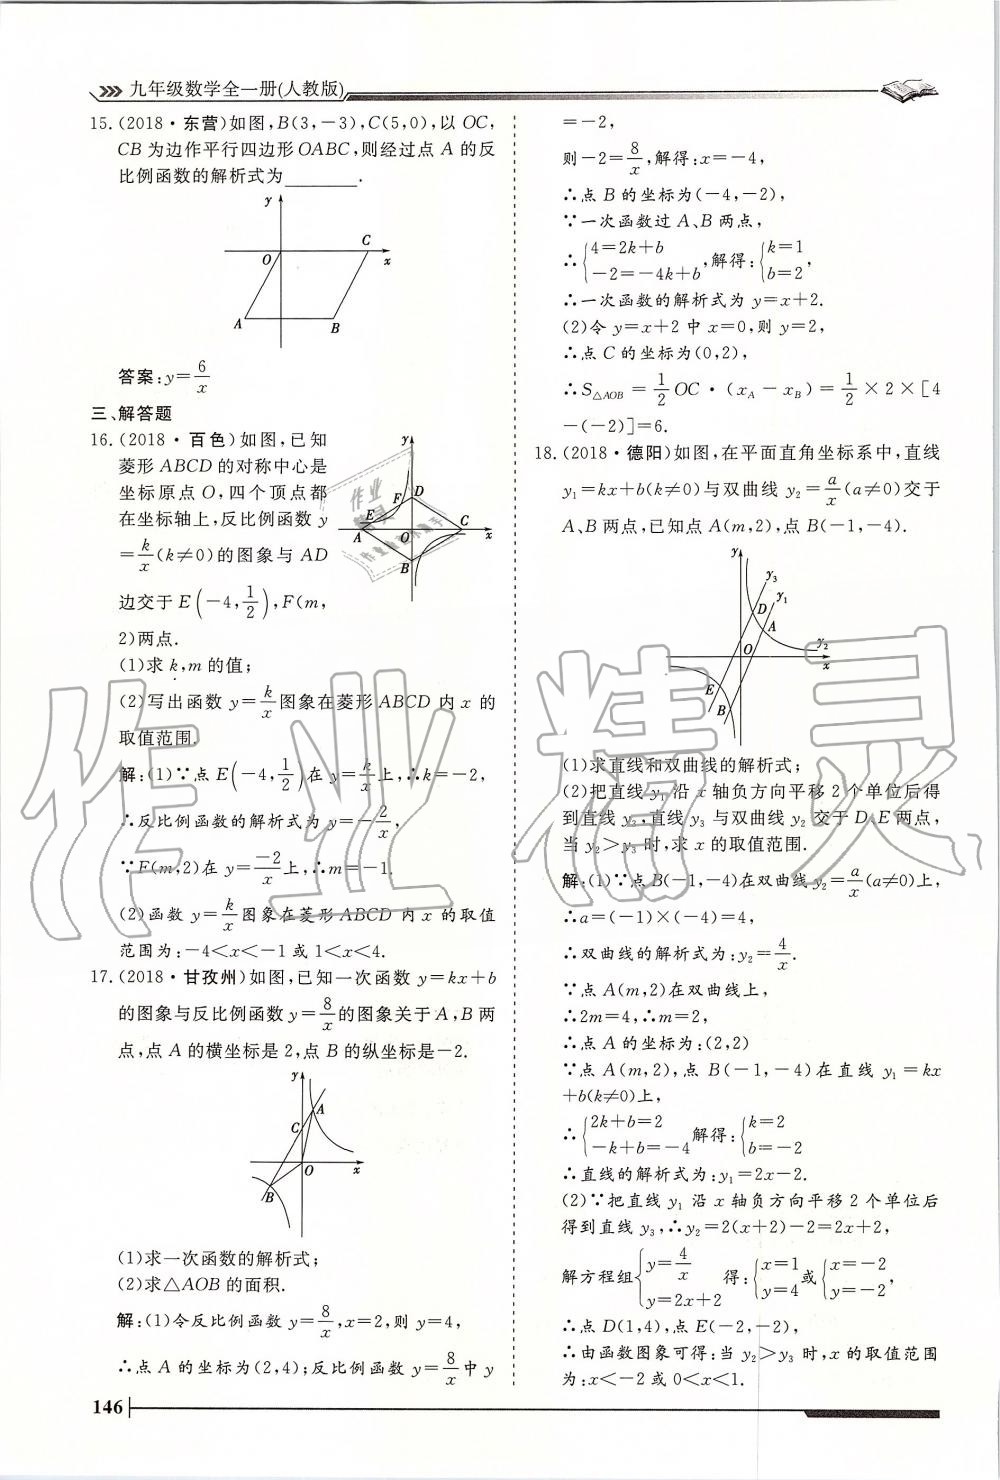 九年级数学全一册(人教版)
15.(2018·东营)如图,B(3,-3),C(5,0),以 OC,
CB 为边作平行四边形 OABC,则经过点 A 的反
比例函数的解析式为________.
y
O
C
x
A
B
答案:y=6/x
三、解答题
16.(2018·百色)如图,已知
菱形 ABCD 的对称中心是
坐标原点 O,四个顶点都
在坐标轴上,反比例函数 y
=k/x(k≠0)的图象与 AD
边交于 E(-4,1/2),F(m,
2)两点.
y
F
D
E
A
O
C
x
B
(1)求 k,m 的值;
(2)写出函数 y=k/x图象在菱形 ABCD 内 x 的
取值范围.
解:(1)∵点 E(-4,1/2)在 y=k/x上,∴k=-2,
∴反比例函数的解析式为 y=-2/x,
∵F(m,2)在 y=-2/x上,∴m=-1.
(2)函数 y=k/x图象在菱形 ABCD 内 x 的取值
范围为:-4<x<-1 或 1<x<4.
17.(2018·甘孜州)如图,已知一次函数 y=kx+b
的图象与反比例函数 y=8/x的图象关于 A,B 两
点,点 A 的横坐标是 2,点 B 的纵坐标是-2.
y
A
C
O
x
B
(1)求一次函数的解析式;
(2)求△AOB 的面积.
解:(1)令反比例函数 y=8/x,x=2,则 y=4,
∴点 A 的坐标为(2,4);反比例函数 y=8/x中 y
=-2,
则-2=8/x,解得:x=-4,
∴点 B 的坐标为(-4,-2),
∵一次函数过 A、B 两点,
∴{4=2k+b
-2=-4k+b,解得:{k=1
b=2,
∴一次函数的解析式为 y=x+2.
(2)令 y=x+2 中 x=0,则 y=2,
∴点 C 的坐标为(0,2),
∴S△AOB=1/2 OC·(xA-xB)=1/2×2×[4
-(-2)]=6.
18.(2018·德阳)如图,在平面直角坐标系中,直线
y₁=kx+b(k≠0)与双曲线 y₂=a/x(a≠0)交于
A、B 两点,已知点 A(m,2),点 B(-1,-4).
y
y₃
y₁
D
A
O
y₂
x
E
B
(1)求直线和双曲线的解析式;
(2)把直线 y₁ 沿 x 轴负方向平移 2 个单位后得
到直线 y₃,直线 y₃ 与双曲线 y₂ 交于 D、E 两点,
当 y₂>y₃ 时,求 x 的取值范围.
解:(1)∵点 B(-1,-4)在双曲线 y₂=a/x(a≠0)上,
∴a=(-1)×(-4)=4,
∴双曲线的解析式为:y₂=4/x.
∵点 A(m,2)在双曲线上,
∴2m=4,∴m=2,
∴点 A 的坐标为:(2,2)
∵点 A(m,2),点 B(-1,-4)在直线 y₁=kx
+b(k≠0)上,
∴{2k+b=2
-k+b=-4 解得:{k=2
b=-2
∴直线的解析式为:y₁=2x-2.
(2)∵把直线 y₁ 沿 x 轴负方向平移 2 个单位后
得到直线 y₃,∴y₂=2(x+2)-2=2x+2,
解方程组{y=4/x
y=2x+2 得:{x=1
y=4 或{x=-2
y=-2,
∴点 D(1,4),点 E(-2,-2),
∴由函数图象可得:当 y₂>y₃ 时,x 的取值范围
为:x<-2 或 0<x<1.
146
作业精灵